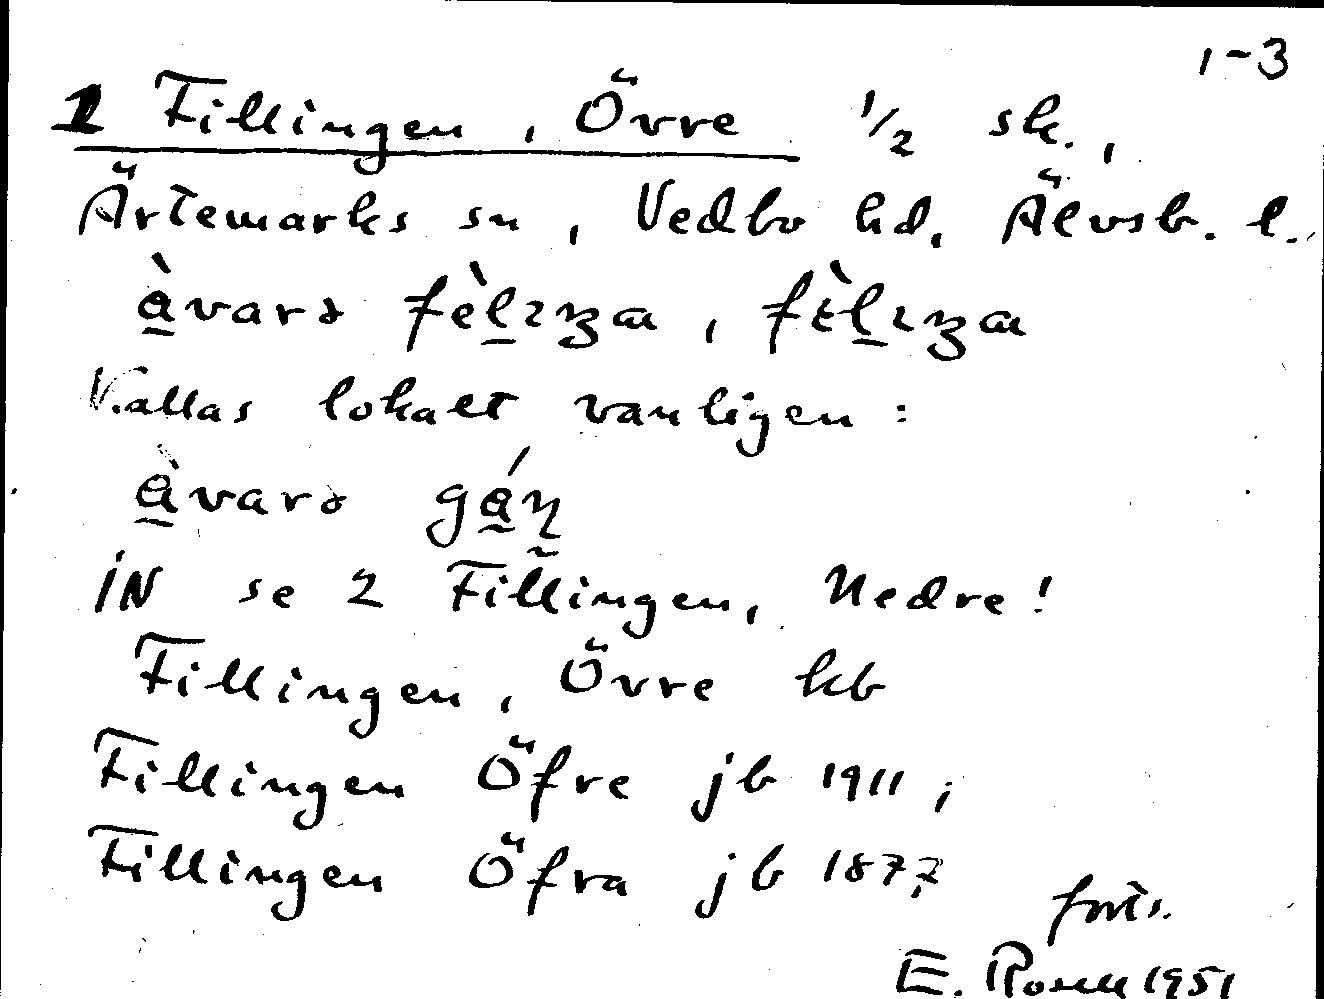 1-3
1 Fillingen, Övre 1/2 sk.,
Ärtemarks sn, Vedbo hd, Älvsb. l.,
Kallas lokalt vanligen:
IN se 2 Fillingen, Nedre!
Fillingen, Övre kb
Fillingen Öfre jb 1911;
Fillingen Öfra jb 1877;
forts.
E. Rosell 1951